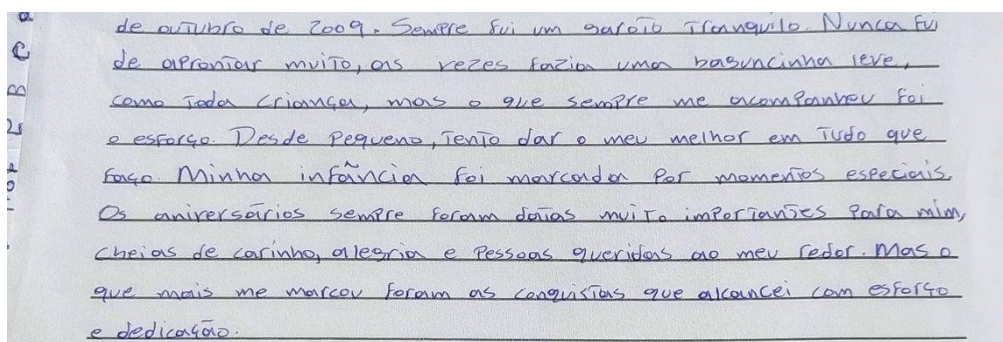 de outubro de 2009. Sempre fui um garoto tranquilo. Nunca fui
de aprontar muito, as vezes fazia uma basuncinha leve,
como toda criança, mas o que sempre me acompanhou foi
o esforço. Desde pequeno, tento dar o meu melhor em tudo que
faço. Minha infância foi marcada por momentos especiais.
Os aniversários sempre foram datas muito importantes para mim,
cheias de carinho, alegria e pessoas queridas ao meu redor. Mas o
que mais me marcou foram as conquistas que alcancei com esforço
e dedicação.